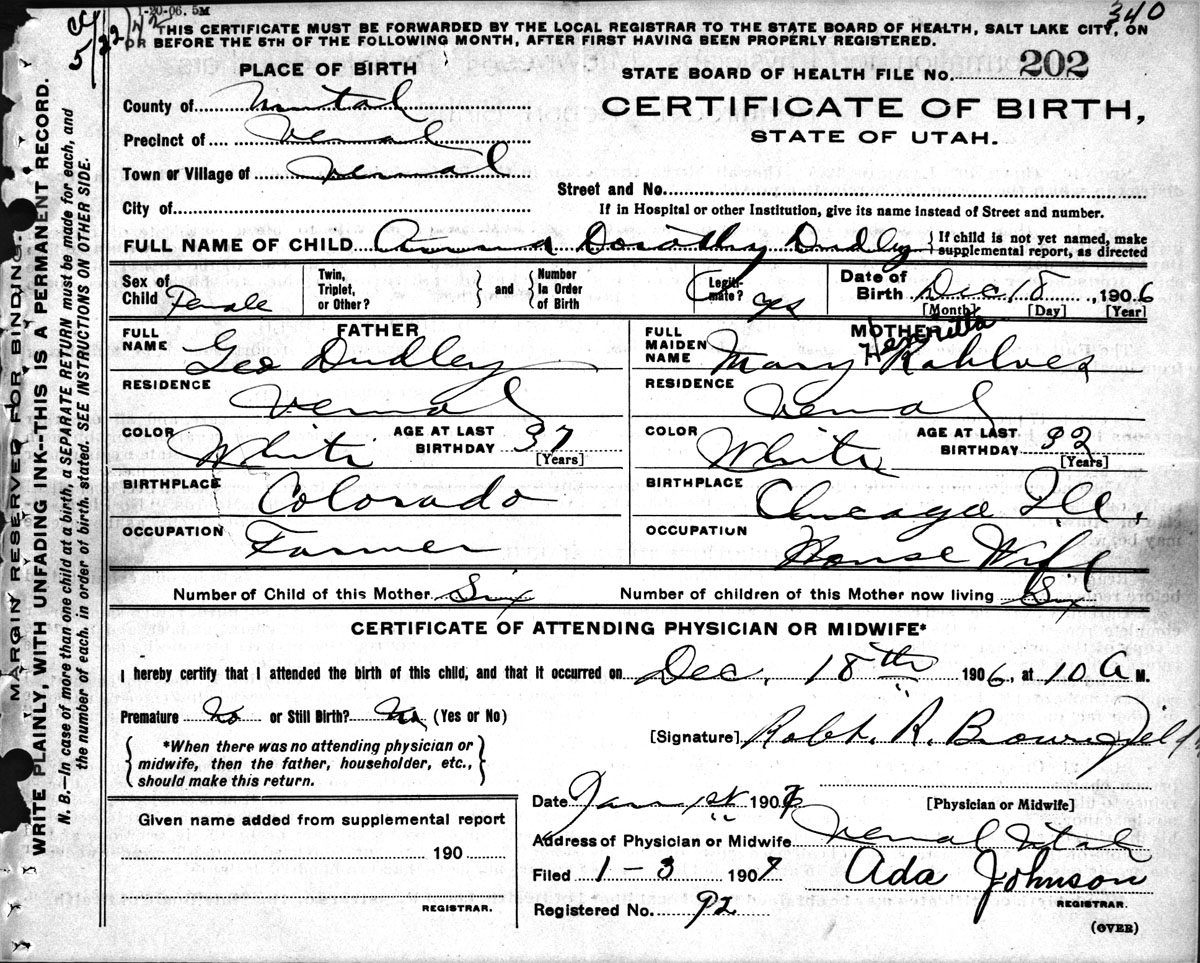 1-20-06. 5M
340
5/22/42
THIS CERTIFICATE MUST BE FORWARDED BY THE LOCAL REGISTRAR TO THE STATE BOARD OF HEALTH, SALT LAKE CITY, ON
OR BEFORE THE 5TH OF THE FOLLOWING MONTH, AFTER FIRST HAVING BEEN PROPERLY REGISTERED.
PLACE OF BIRTH
STATE BOARD OF HEALTH FILE No. 202
County of
CERTIFICATE OF BIRTH,
STATE OF UTAH.
Precinct of Vernal
Town or Village of Vernal
Street and No.
City of
If in Hospital or other Institution, give its name instead of Street and number.
FULL NAME OF CHILD Dorothy Dudley { If child is not yet named, make supplemental report, as directed
Sex of Child Female
Twin, Triplet, or Other? } and { Number In Order of Birth
Legitimate? yes
Date of Birth Dec 18, 1906
[Month] [Day] [Year]
FATHER
FULL NAME Geo Dudley
RESIDENCE Vernal
COLOR White
AGE AT LAST BIRTHDAY 37
[Years]
BIRTHPLACE Colorado
OCCUPATION Farmer
MOTHER
FULL MAIDEN NAME Mary Rahlves
RESIDENCE Vernal
COLOR White
AGE AT LAST BIRTHDAY 32
[Years]
BIRTHPLACE Chicago Ill.
OCCUPATION House Wife
Number of Child of this Mother Six Number of children of this Mother now living Six
CERTIFICATE OF ATTENDING PHYSICIAN OR MIDWIFE*
I hereby certify that I attended the birth of this child, and that it occurred on Dec. 18th 1906, at 10 a M.
Premature No or Still Birth? No (Yes or No)
{ *When there was no attending physician or
midwife, then the father, householder, etc.,
should make this return. }
[Signature] Robt. R. Brownfield
Date Jan 1st 1907
[Physician or Midwife]
Given name added from supplemental report
190
REGISTRAR.
Address of Physician or Midwife Vernal Utah
Filed 1-3 1907 Ada Johnson
REGISTRAR.
Registered No. 92
(OVER)
MARGIN RESERVED FOR BINDING.
WRITE PLAINLY, WITH UNFADING INK—THIS IS A PERMANENT RECORD.
N. B.—In case of more than one child at a birth, a SEPARATE RETURN must be made for each, and
the number of each, in order of birth, stated SEE INSTRUCTIONS ON OTHER SIDE.